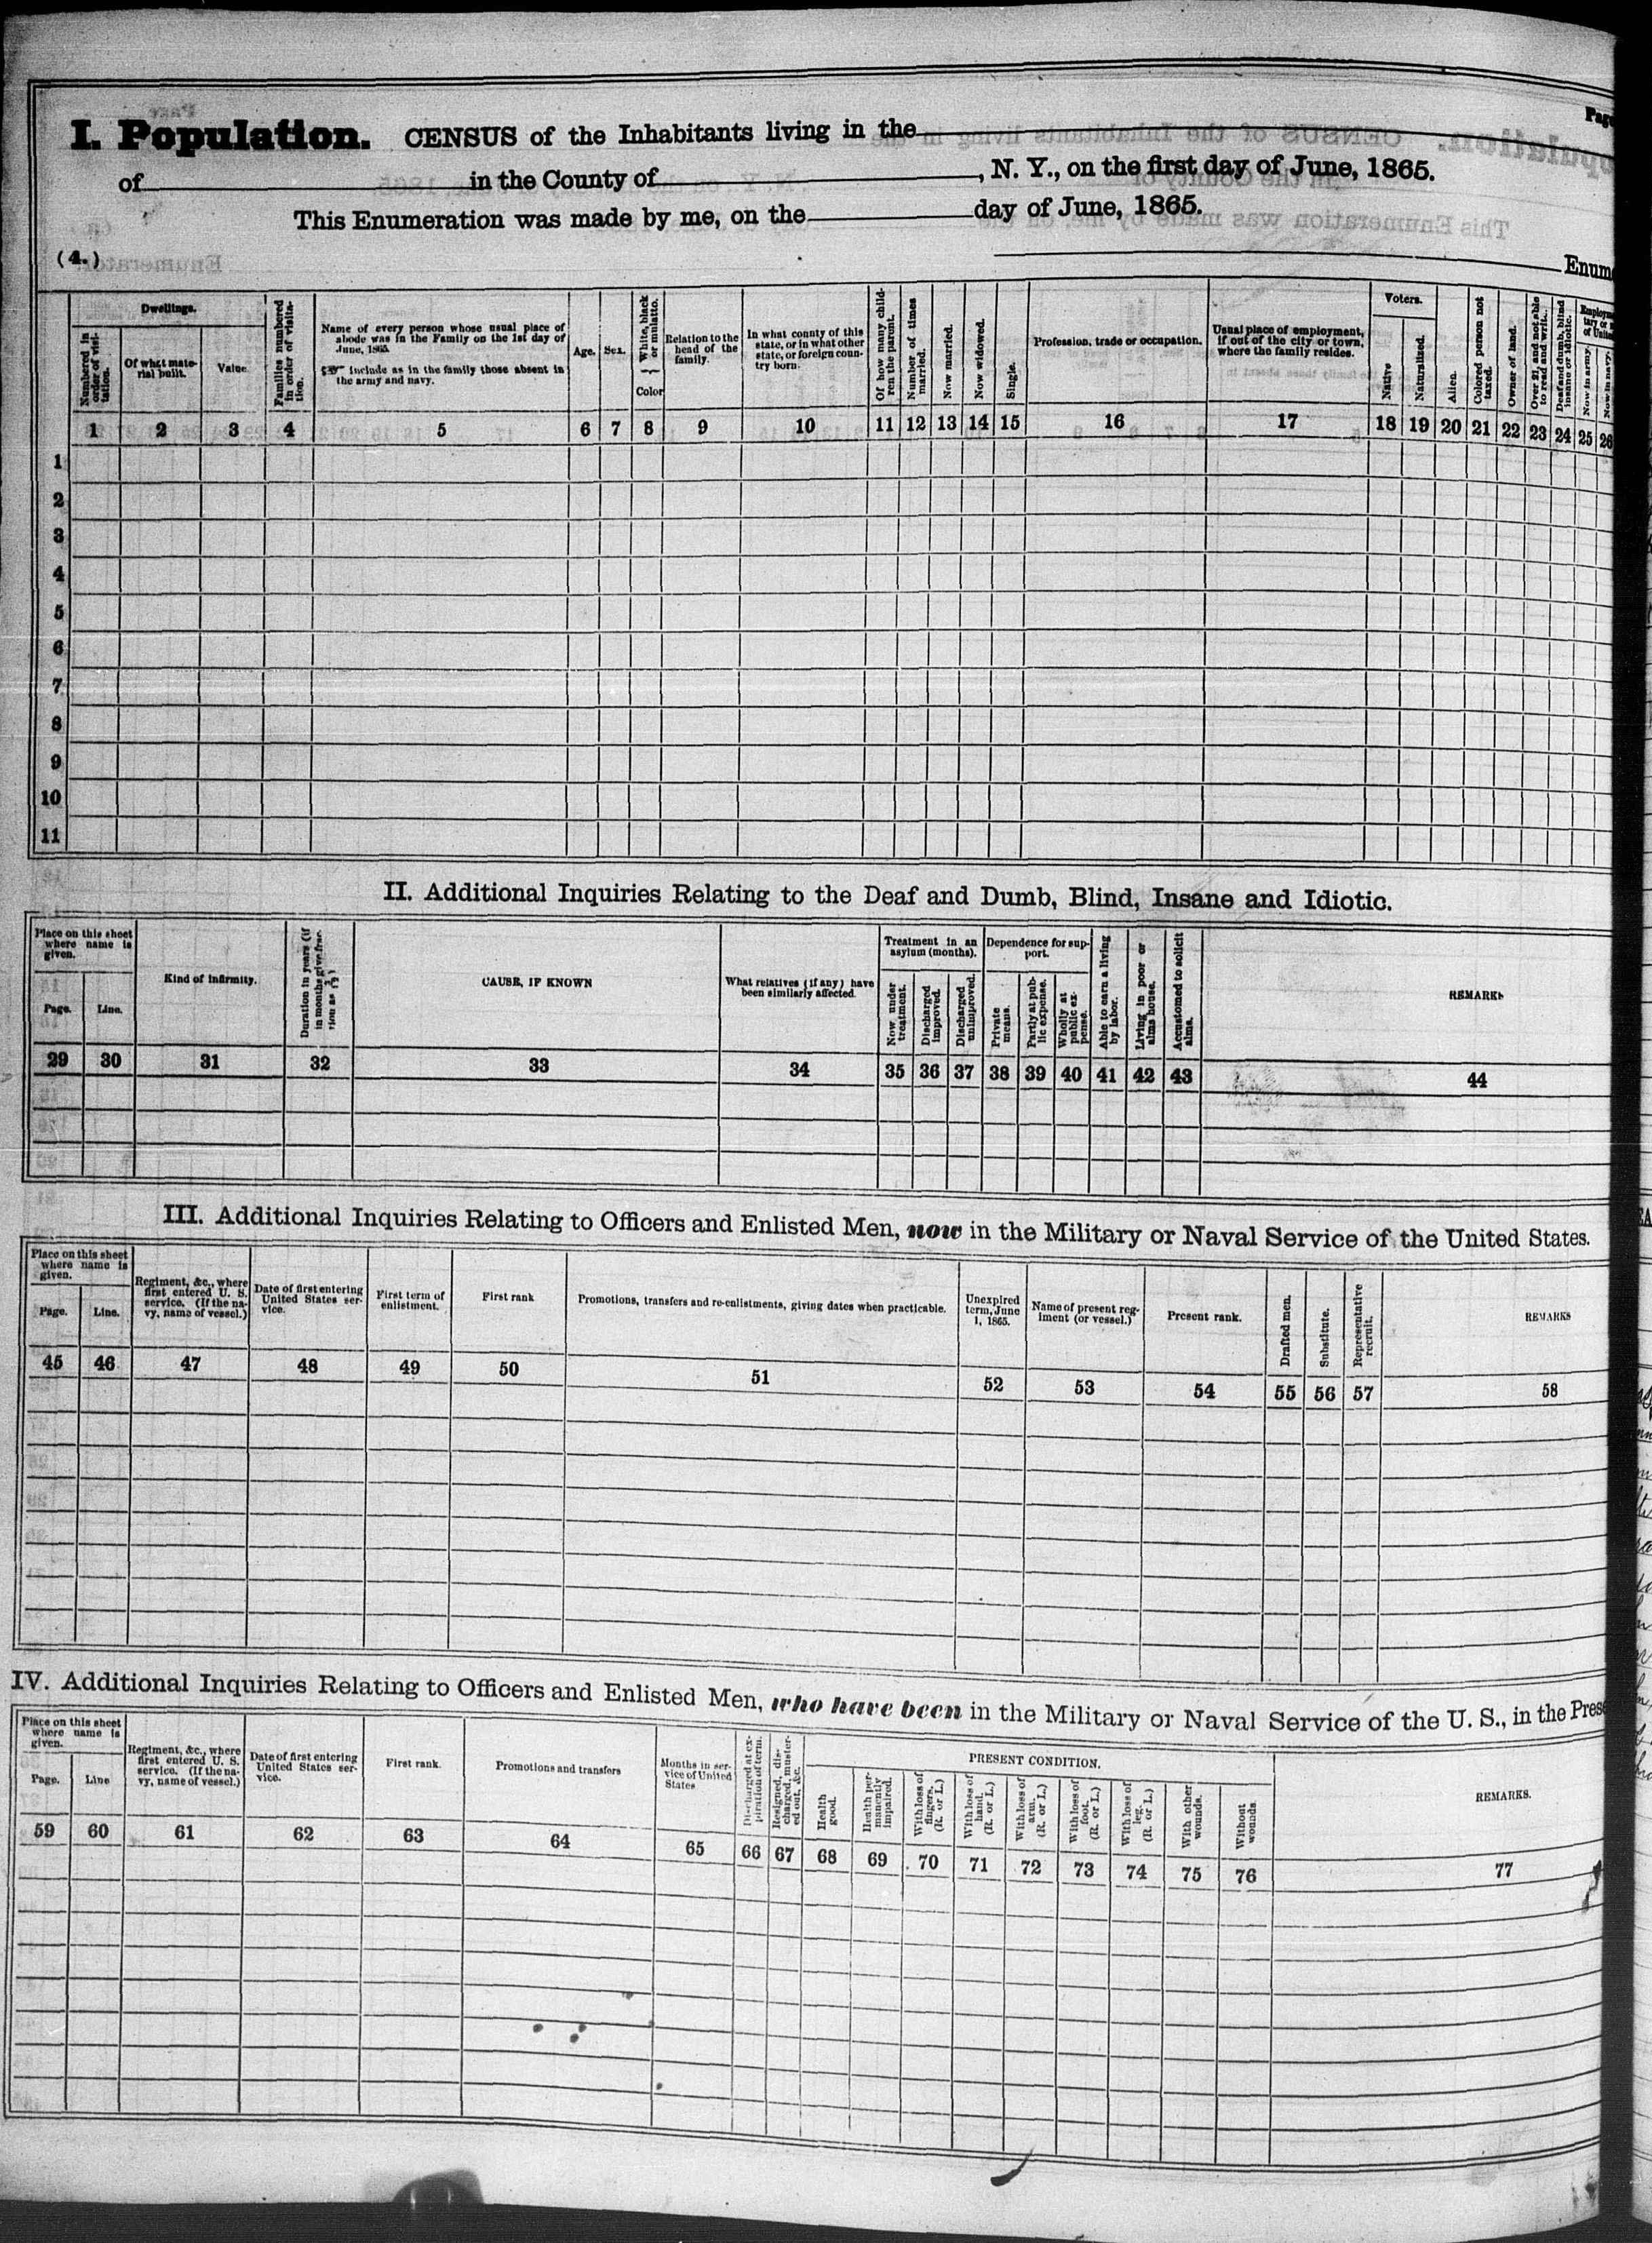 Page
I. Population. CENSUS of the Inhabitants living in the
of in the County of , N. Y., on the first day of June, 1865.
This Enumeration was made by me, on the day of June, 1865.
(4.)
Enum
Numbered in order of visitation.
Dwellings.
Of what material built.
Value.
Families numbered in order of visitation.
Name of every person whose usual place of
abode was in the Family on the 1st day of
June, 1865.
☞ Include as in the family those absent in
the army and navy.
Age.
Sex.
White, black or mulatto.
Color
Relation to the
head of the
family.
In what county of this
state, or in what other
state, or foreign coun-
try born.
Of how many child-
ren the parent.
Number of times
married.
Now married.
Now widowed.
Single.
Profession, trade or occupation.
Usual place of employment,
if out of the city or town,
where the family resides.
Voters.
Native
Naturalized.
Alien.
Colored person not
taxed.
Owner of land.
Over 21, and not able
to read and write.
Deaf and dumb, blind
insane or idiotic.
Now in army.
Now in navy.
1 2 3 4 5 6 7 8 9 10 11 12 13 14 15 16 17 18 19 20 21 22 23 24 25 26
1
2
3
4
5
6
7
8
9
10
11
II. Additional Inquiries Relating to the Deaf and Dumb, Blind, Insane and Idiotic.
Place on this sheet
where name is
given.
Page.
Line.
Kind of infirmity.
Duration in years (if
in months give frac-
CAUSE, IF KNOWN
What relatives (if any) have
been similarly affected.
Treatment in an
asylum (months).
Now under
treatment.
Discharged
improved.
Discharged
unimproved.
Dependence for sup-
port.
Private
means.
Partly at pub-
lic expense.
Wholly at
public ex-
pense.
Able to earn a living
by labor.
Living in poor or
alms house.
Accustomed to solicit
alms.
REMARKS
29 30 31 32 33 34 35 36 37 38 39 40 41 42 43 44
III. Additional Inquiries Relating to Officers and Enlisted Men, now in the Military or Naval Service of the United States.
Place on this sheet
where name is
given.
Page.
Line.
Regiment, &c., where
first entered U. S.
service. (If the na-
vy, name of vessel.)
Date of first entering
United States ser-
vice.
First term of
enlistment.
First rank
Promotions, transfers and re-enlistments, giving dates when practicable.
Unexpired
term, June
1, 1865.
Name of present reg-
iment (or vessel.)
Present rank.
Drafted men.
Substitute.
Representative
recruit.
REMARKS
45 46 47 48 49 50 51 52 53 54 55 56 57 58
IV. Additional Inquiries Relating to Officers and Enlisted Men, who have been in the Military or Naval Service of the U. S., in the Prese
Place on this sheet
where name is
given.
Page.
Line
Regiment, &c., where
first entered U. S.
service. (If the na-
vy, name of vessel.)
Date of first entering
United States ser-
vice.
First rank.
Promotions and transfers
Months in ser-
vice of United
States
Discharged at ex-
piration of term.
Resigned, dis-
charged, muster-
ed out, &c.
PRESENT CONDITION.
Health
good.
Health per-
manently
impaired.
With loss of
fingers.
(R. or L.)
With loss of
hand.
(R. or L.)
With loss of
arm.
(R. or L.)
With loss of
foot.
(R. or L.)
With loss of
leg.
(R. or L.)
With other
wounds.
Without
wounds
REMARKS.
59 60 61 62 63 64 65 66 67 68 69 70 71 72 73 74 75 76 77